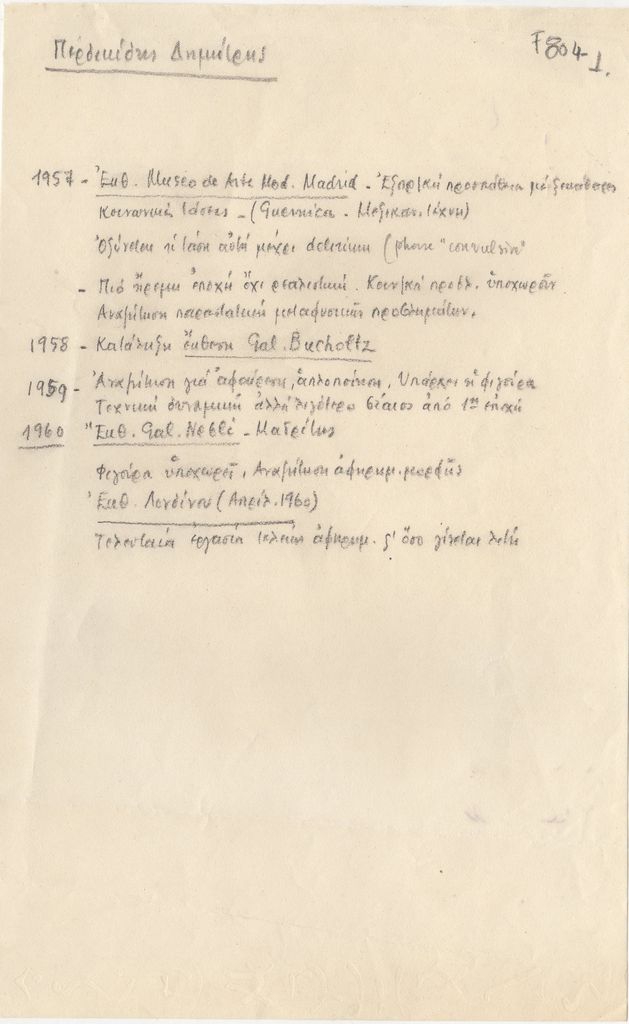 Περδικίδης Δημήτρης
F804
1.
1957 - Ἔκθ. Museo de Arte Mod. Madrid - Ἐξπρ/κή προσπάθεια μέ ξεκάθαρες
κοινωνικές τάσεις - (Guernica - Μεξικαν. τέχνη)
Ὀξύνεται ἡ τάση αὐτή μέχρι delirium (phase "convulsive"
- Πιό ἤρεμη ἐποχή ὄχι ρεαλιστική. Κοιν/κή προβλ. ὑποχωροῦν
Αναζήτηση παραστατική μεταφυσικῶν προβλημάτων.
1958 - Κατάληξη ἔκθεση Gal. Bucholtz
1959 - Ἀναζήτηση γιά ἀφαίρεση, ἁπλοποίηση, Υπάρχει ἡ φιγούρα
Τεχνική δυναμική ἀλλά λιγότερο βίαιος ἀπό 1η ἐποχή
1960 Ἔκθ. Gal. Neblí - Μαδρίτης
Φιγούρα ὑποχωρεῖ, Αναζήτηση ἀφηρημ. μορφῆς
Ἔκθ. Λονδίνου (Απρίλ. 1960)
Τελευταία ἐργασία τελείως ἀφηρημ. ὅσο γίνεται λιτή